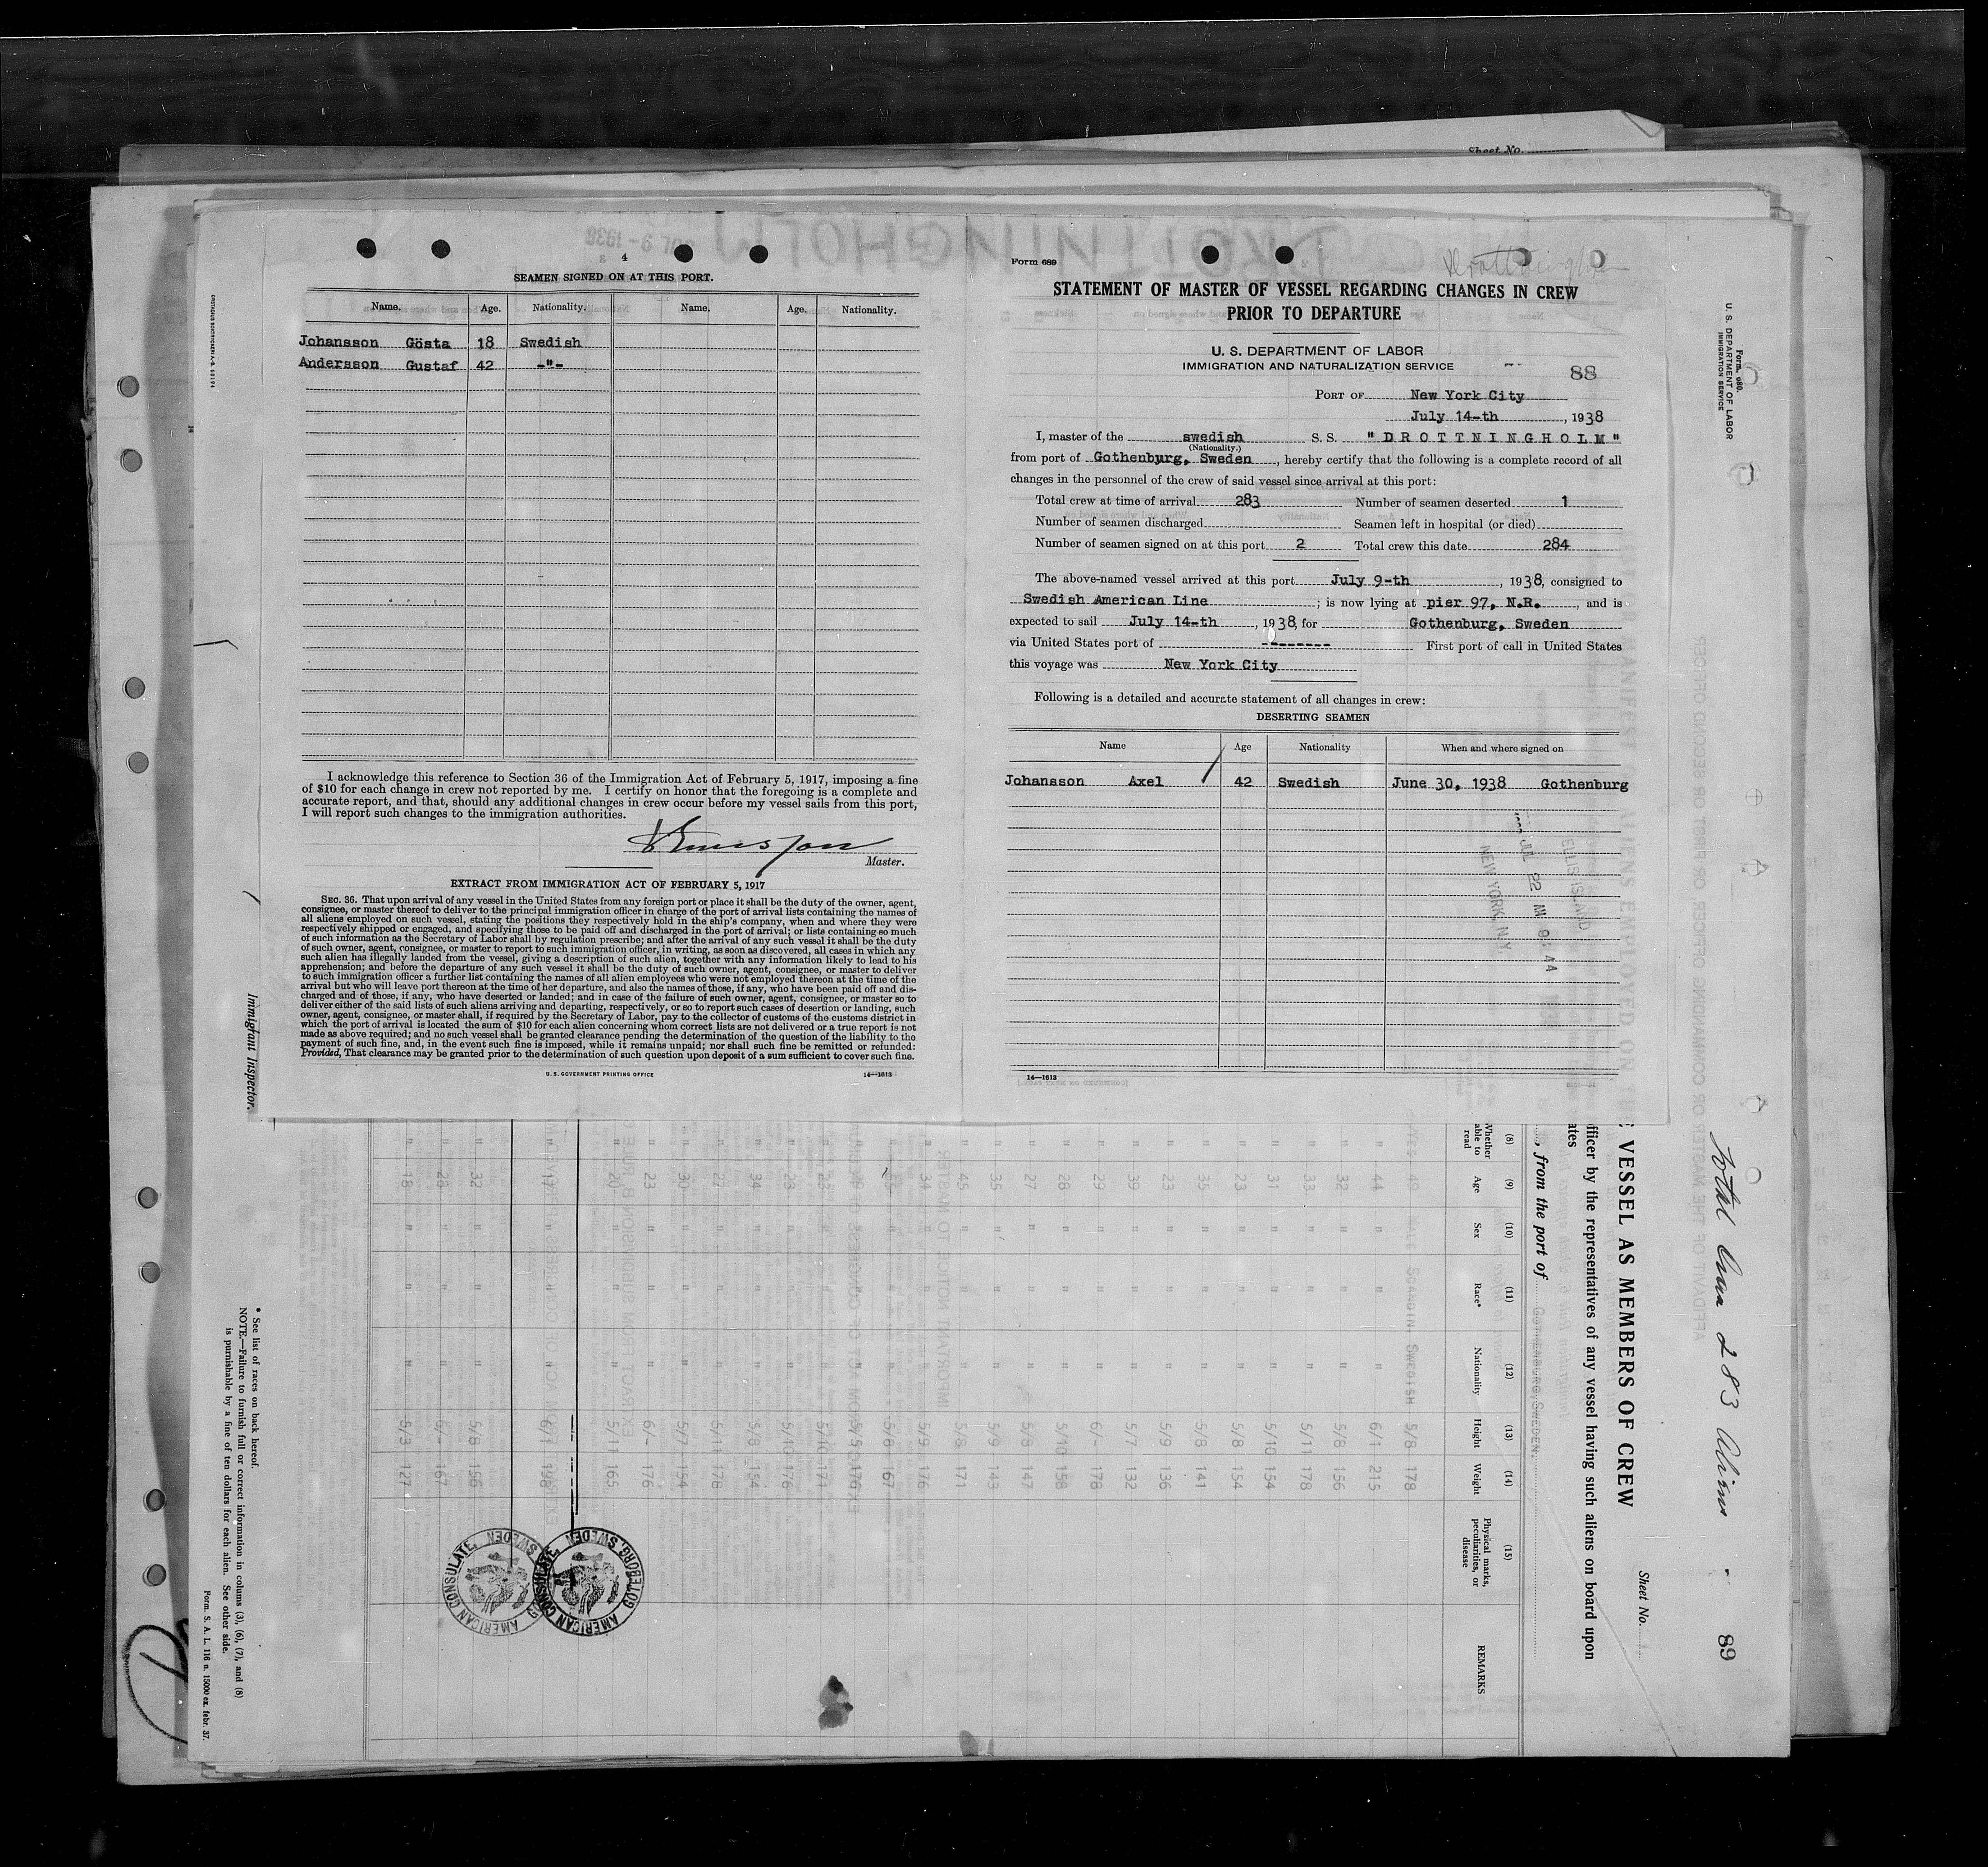 Sheet No.
4
SEAMEN SIGNED ON AT THIS PORT.
Name. Age. Nationality. Name. Age. Nationality.
Johansson Gösta 18 Swedish
Andersson Gustaf 42 -"-
I acknowledge this reference to Section 36 of the Immigration Act of February 5, 1917, imposing a fine
of $10 for each change in crew not reported by me. I certify on honor that the foregoing is a complete and
accurate report, and that, should any additional changes in crew occur before my vessel sails from this port,
I will report such changes to the immigration authorities.
Master.
EXTRACT FROM IMMIGRATION ACT OF FEBRUARY 5, 1917
SEC. 36. That upon arrival of any vessel in the United States from any foreign port or place it shall be the duty of the owner, agent,
consignee, or master thereof to deliver to the principal immigration officer in charge of the port of arrival lists containing the names of
all aliens employed on such vessel, stating the positions they respectively hold in the ship's company, when and where they were
respectively shipped or engaged, and specifying those to be paid off and discharged in the port of arrival; or lists containing so much
of such information as the Secretary of Labor shall by regulation prescribe; and after the arrival of any such vessel it shall be the duty
of such owner, agent, consignee, or master to report to such immigration officer, in writing, as soon as discovered, all cases in which any
such alien has illegally landed from the vessel, giving a description of such alien, together with any information likely to lead to his
apprehension; and before the departure of any such vessel it shall be the duty of such owner, agent, consignee, or master to deliver
to such immigration officer a further list containing the names of all alien employees who were not employed thereon at the time of the
arrival but who will leave port thereon at the time of her departure, and also the names of those, if any, who have been paid off and dis-
charged and of those, if any, who have deserted or landed; and in case of the failure of such owner, agent, consignee, or master so to
deliver either of the said lists of such aliens arriving and departing, respectively, or so to report such cases of desertion or landing, such
owner, agent, consignee, or master shall, if required by the Secretary of Labor, pay to the collector of customs of the customs district in
which the port of arrival is located the sum of $10 for each alien concerning whom correct lists are not delivered or a true report is not
made as above required; and no such vessel shall be granted clearance pending the determination of the question of the liability to the
payment of such fine, and, in the event such fine is imposed, while it remains unpaid; nor shall such fine be remitted or refunded:
Provided, That clearance may be granted prior to the determination of such question upon deposit of a sum sufficient to cover such fine.
U. S. GOVERNMENT PRINTING OFFICE 14—1613
Form 689
Drottningholm
STATEMENT OF MASTER OF VESSEL REGARDING CHANGES IN CREW
PRIOR TO DEPARTURE
U. S. DEPARTMENT OF LABOR
IMMIGRATION AND NATURALIZATION SERVICE
88
PORT OF New York City
July 14-th, 1938
I, master of the swedish S. S. "DROTTNINGHOLM"
(Nationality.)
from port of Gothenburg, Sweden, hereby certify that the following is a complete record of all
changes in the personnel of the crew of said vessel since arrival at this port:
Total crew at time of arrival 283 Number of seamen deserted 1
Number of seamen discharged Seamen left in hospital (or died)
Number of seamen signed on at this port 2 Total crew this date 284
The above-named vessel arrived at this port July 9-th, 1938, consigned to
Swedish American Line; is now lying at pier 97, N.R., and is
expected to sail July 14-th, 1938, for Gothenburg, Sweden
via United States port of -------- First port of call in United States
this voyage was New York City
Following is a detailed and accurate statement of all changes in crew:
DESERTING SEAMEN
Name Age Nationality When and where signed on
Johansson Axel 42 Swedish June 30, 1938 Gothenburg
ELLIS ISLAND
JUL 22 AM 9
NEW YORK, N.Y.
14—1613
Form 680.
U. S. DEPARTMENT OF LABOR
IMMIGRATION SERVICE
Total Crew 283 Aliens
89
Sheet No.
VESSEL AS MEMBERS OF CREW
officer by the representatives of any vessel having such aliens on board upon
, from the port of GOTHENBURG, SWEDEN.
(8) (9) (10) (11) (12) (13) (14) (15)
Whether able to read Age Sex Race* Nationality Height Weight Physical marks, peculiarities, or disease REMARKS
49 MALE SCANDIN. SWEDISH 5/8 178
" 44 " " " 6/1 215
" 32 " " " 5/8 156
" 33 " " " 5/11 178
" 31 " " " 5/10 154
" 23 " " " 5/8 154
" 35 " " " 5/8 141
" 23 " " " 5/9 136
" 39 " " " 5/7 132
" 29 " " " 6/- 178
" 28 " " " 5/10 158
" 27 " " " 5/8 147
" 35 " " " 5/9 143
" 45 " " " 5/8 171
" 34 " " " 5/9 176
AMERICAN CONSULATE, GOTEBORG, SWEDEN
AMERICAN CONSULATE, GOTEBORG, SWEDEN
Immigrant Inspector.
* See list of races on back hereof.
NOTE.—Failure to furnish full or correct information in colums (3), (6), (7), and (8)
is punishable by a fine of ten dollars for each alien. See other side.
Form. S. A. L. 116 n. 15000 ex. febr. 37.